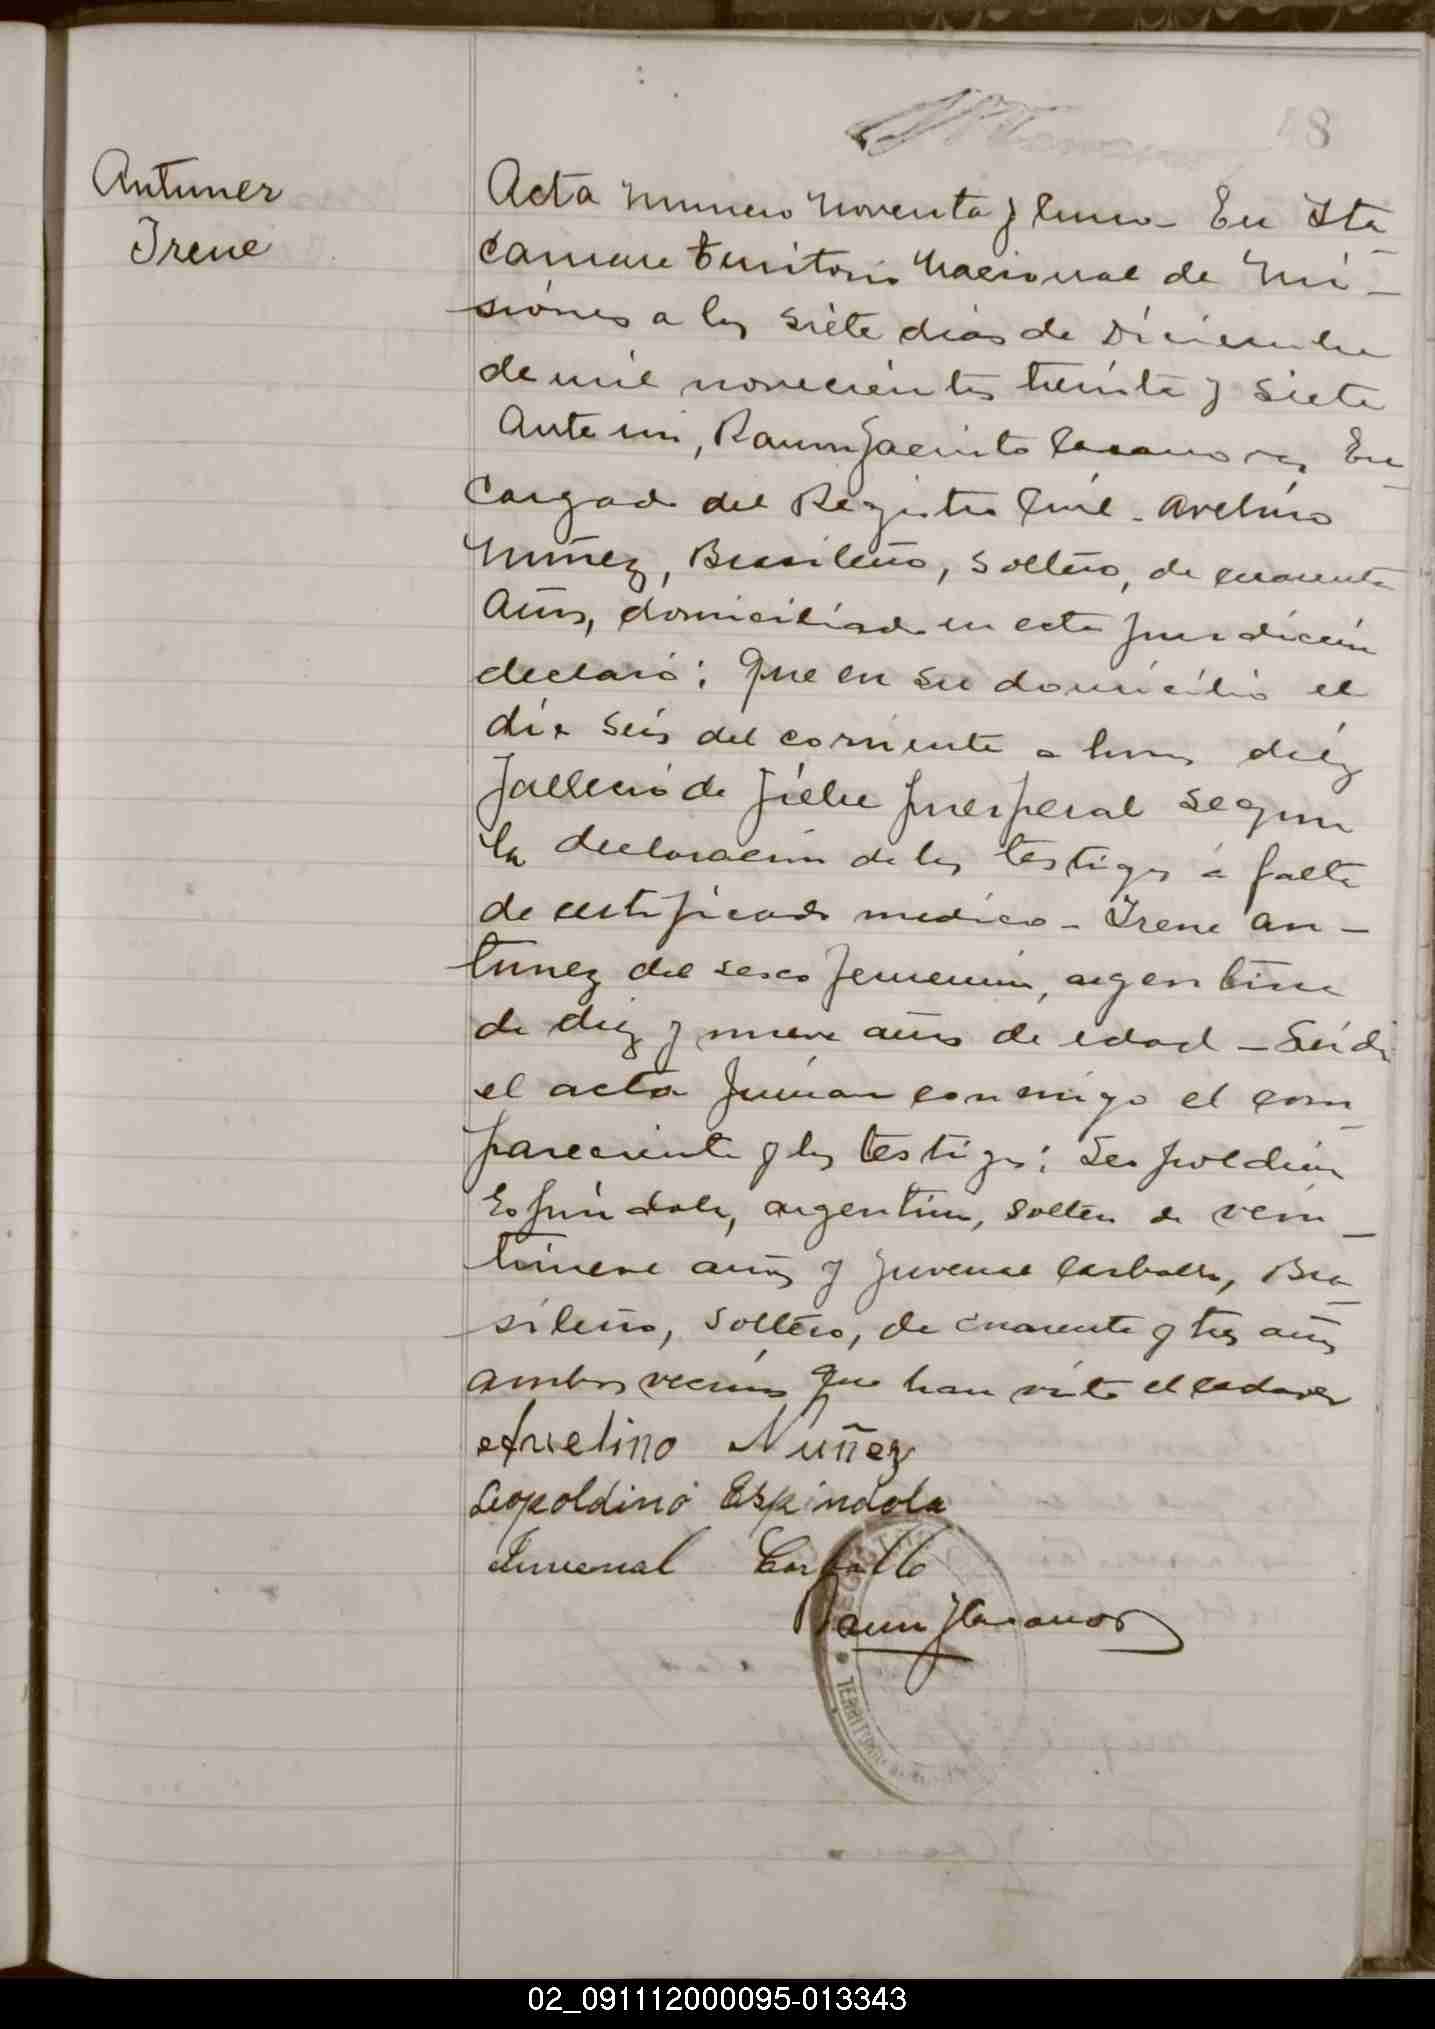 48
Antunez
Irene
Acta numero noventa y cinco - En Ita
caruare territorio Nacional de Mi-
siónes a los siete dias de Diciembre
de mil novecientos treinta y siete
Ante mi, Ramon Jacinto Casanova, En-
cargado del Registro Civil - Avelino
Nuñez, Brasileño, soltero, de cuarenta
años, domiciliado en esta jurisdicción
declaró: Que en su domicilio el
día seis del corriente a horas diéz
falleció de fiebre puerperal segun
la declaración de los testigos á falta
de certificado medico - Irene An-
tunez del sexo femenino, argentina
de diez y nueve años de edad - Leida
el acta firman conmigo el com-
pareciente y los testigos: Leopoldino
Espíndola, argentino, soltero de vein-
tinueve años y Juvenal Carballo, Bra-
sileño, soltero, de cuarenta y tres años
ambos vecinos que han visto el cadaver
Avelino Nuñez
Leopoldino Espindola
Juvenal Carballo
Ramon J Casanova
TERRITORIO
02_091112000095-013343